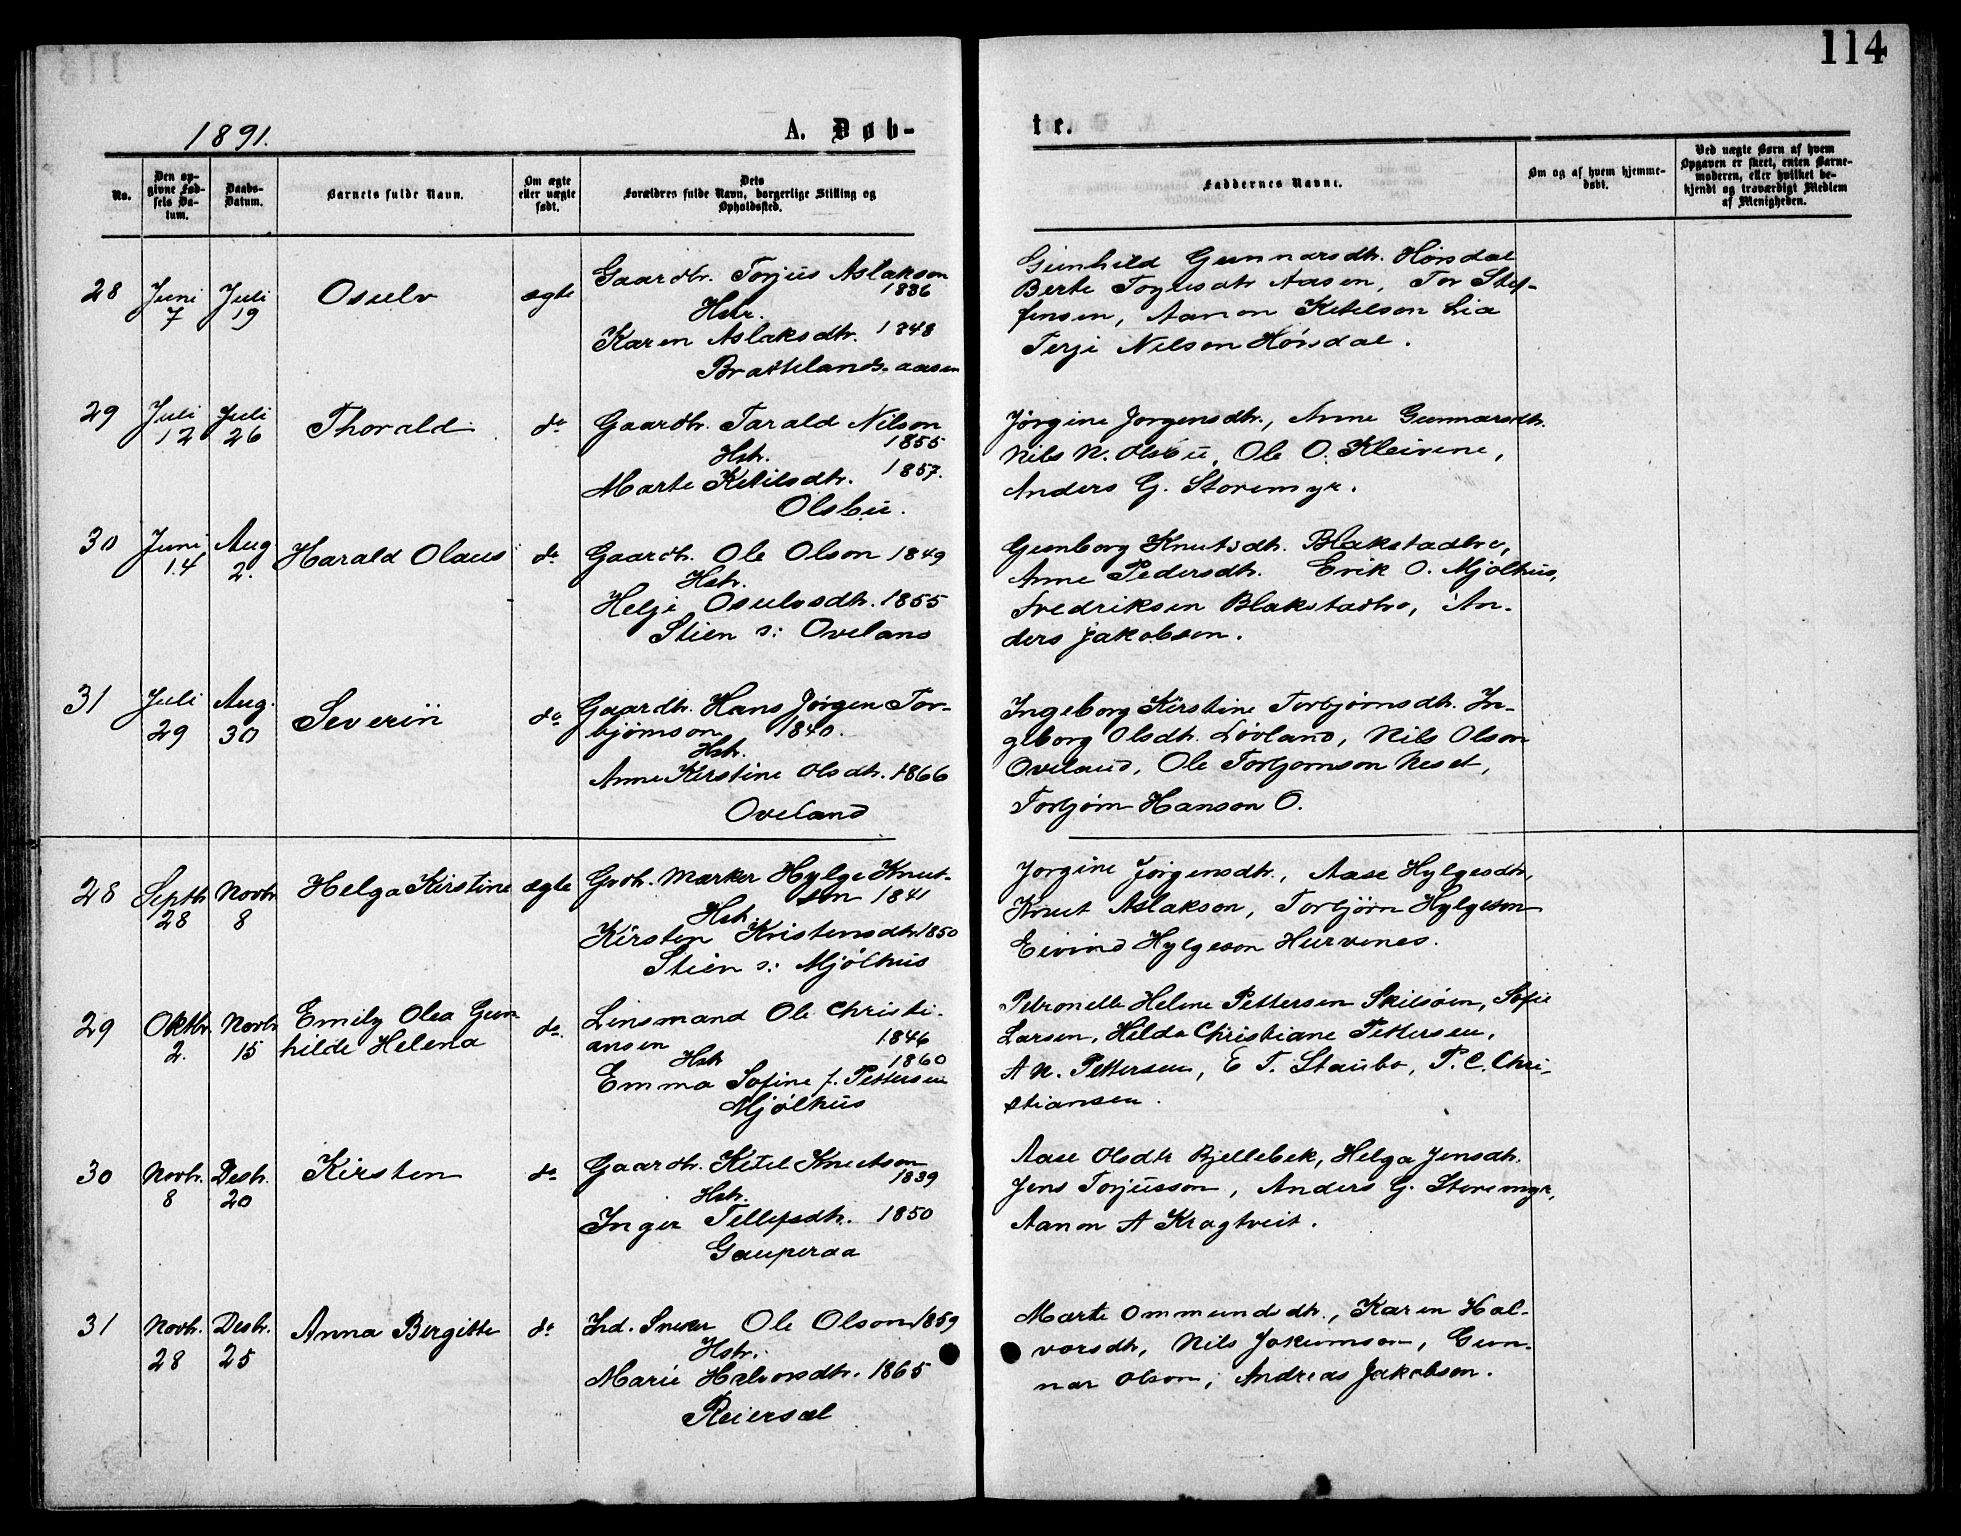 114
1891.
A. Døb-
te.
No.
Den op-
givne Fød-
sels Da-
tum.
Daabs-
Datum.
Barnets fulde Navn.
Om ægte
eller uægte
født.
Dets
Forældres fulde Navn, borgerlige Stilling og
Opholdssted.
Faddernes Navne.
Om og af hvem hjemme-
døbt.
Ved uægte Børn af hvem
Opgaven er skeet, enten Barne-
moderen, eller hvilket be-
kjendt og troværdigt Medlem
af Menigheden.
28
Juni
7
Juli
19
Osulv
ægte
Gaardbr. Torjus Aslakson
1836
Hstr.
Karen Aslaksdtr. 1848
Brattelands-aasen
Gunhild Gunnarsdtr. Hørsdal
Berte Torjusdtr Aasen, Tor Stef-
fensen, Aanon Ketelson Lia
Terje Nilson Hørsdal.
29
Juli
12
Juli
26
Thorald
do
Gaardbr. Tarald Nilson
1855
Hstr.
Marte Ketilsdtr. 1857.
Olsbu.
Jørgine Jørgensdtr., Anne Gunnarsdtr.
Nils N. Olsbu, Ole O. Kleivene,
Anders G. Storemyr.
30
Juni
14
Aug
2.
Harald Olaus
do.
Gaardbr. Ole Olson 1849
Hstr.
Helje Osulvsdtr. 1855
Stien s: Oveland
Gunborg Knutsdtr. Blakstadbo,
Anne Pedersdtr. Erik O. Mjølhus,
Fredriksen Blakstadbo, An-
ders Jakobsen.
31
Juli
29
Aug.
30
Severin
do
Gaardbr. Hans Jørgen Tor-
bjørnson 1840.
Hstr.
Anne Kirstine Olsdtr. 1866
Oveland
Ingeborg Kirstine Torbjørnsdtr. In-
geborg Olsdtr. Løvland, Nils Olson
Oveland, Ole Torbjørnson Neset,
Torbjørn Hanson O.
28
Septbr
28
Novbr
8
Helga Kirstine
ægte
Gbr. Mærker Hylge Knut-
son 1841
Hstr.
Kirsten Kristensdtr 1850
Stien s: Mjølhus
Jørgine Jørgensdtr., Aase Hylgesdtr,
Knut Aslakson, Torbjørn Hylgeson
Eivind Hylgeson Hurvenes.
29
Oktbr.
2.
Novbr
15
Emily Olea Gun
hilde Helena
do.
Linsmand Ole Christi-
ansen 1846
Hstr 1860
Emma Sofine f. Pettersen
Mjølhus
Petronelle Helene Pettersen Skilsøen, Sofie
Larsen, Hilda Christiane Pettersen,
A N. Pettersen, E T. Staubo, P. C. Chri-
stiansen.
30
Novbr.
8
Desbr.
20
Kirsten
do
Gaardbr. Ketel Knutson
1839
Hstr.
Inger Tellefsdtr. 1850
Gauperaa
Aase Olsdtr Bjellebek, Helga Jensdtr.
Jens Torjusson, Anders G. Storemyr,
Aanon A Kragtveit.
31
Novbr.
28
Desbr.
25
Anna Bergitte
do
Ind. Ole Olson 1859
Hstr.
Marie Halvorsdtr. 1865
Reiersøl
Marte Ommundsdtr., Karen Hal-
vorsdtr, Nils Jokumson, Gun-
nar Olson, Andreas Jakobson.